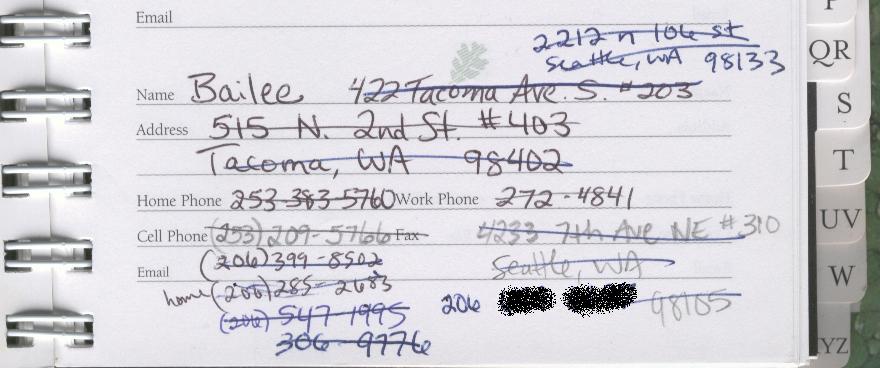 Email
2212 n 106 st
Seattle, WA 98133
Name Bailee 422 Tacoma Ave. S. #203
Address 515 N. 2nd St. #403
Tacoma, WA 98402
Home Phone 253-383-5760 Work Phone 272-4841
Cell Phone (253) 209-5766 Fax 4233 7th Ave NE #310
Email (206) 399-8502 Seattle, WA
home (206) 285-2683
206 98105
(206) 547 1995
306-9776
P
QR
S
T
UV
W
YZ